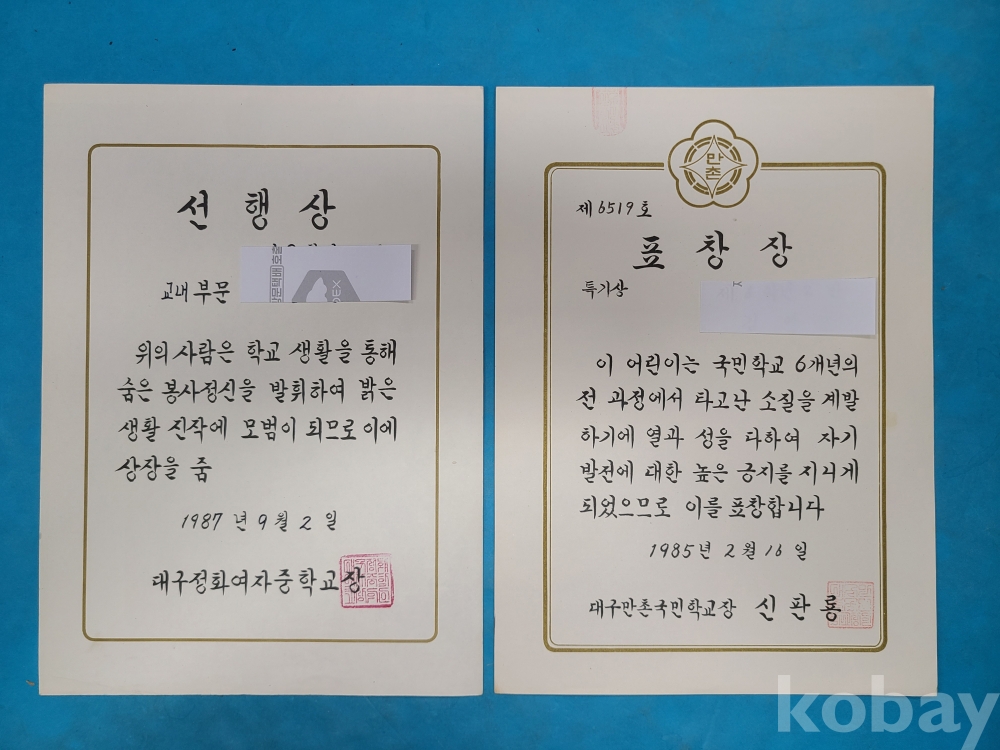 선행상
교내부문
위의 사람은 학교 생활을 통해
숨은 봉사정신을 발휘하여 밝은
생활 진작에 모범이 되므로 이에
상장을 줌
1987년 9월 2일
대구정화여자중학교장
만촌
제6519호
표창장
특기상
이 어린이는 국민학교 6개년의
전 과정에서 타고난 소질을 계발
하기에 열과 성을 다하여 자기
발전에 대한 높은 긍지를 지니게
되었으므로 이를 표창합니다
1985년 2월 16일
대구만촌국민학교장 신판룡
kobay